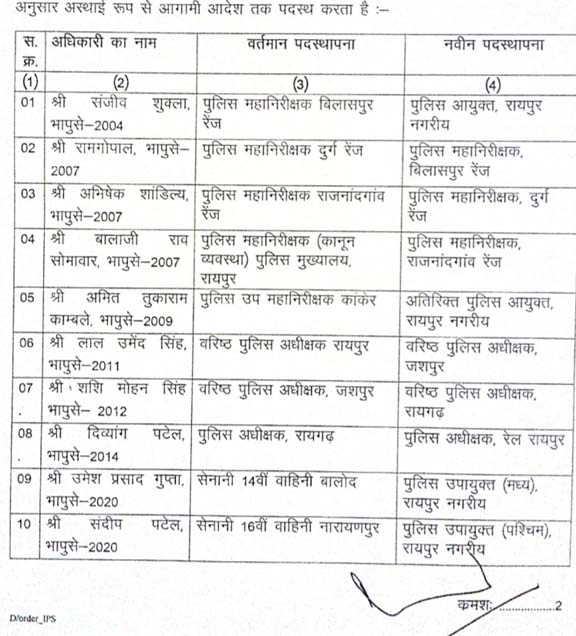 अनुसार अस्थाई रूप से आगामी आदेश तक पदस्थ करता है :–
स. क्र. अधिकारी का नाम वर्तमान पदस्थापना नवीन पदस्थापना
(1) (2) (3) (4)
01 श्री संजीव शुक्ला, भापुसे–2004 पुलिस महानिरीक्षक बिलासपुर रेंज पुलिस आयुक्त, रायपुर नगरीय
02 श्री रामगोपाल, भापुसे–2007 पुलिस महानिरीक्षक दुर्ग रेंज पुलिस महानिरीक्षक, बिलासपुर रेंज
03 श्री अभिषेक शांडिल्य, भापुसे–2007 पुलिस महानिरीक्षक राजनांदगांव रेंज पुलिस महानिरीक्षक, दुर्ग रेंज
04 श्री बालाजी राव सोमावार, भापुसे–2007 पुलिस महानिरीक्षक (कानून व्यवस्था) पुलिस मुख्यालय, रायपुर पुलिस महानिरीक्षक, राजनांदगांव रेंज
05 श्री अमित तुकाराम काम्बले, भापुसे–2009 पुलिस उप महानिरीक्षक कांकेर अतिरिक्त पुलिस आयुक्त, रायपुर नगरीय
06 श्री लाल उमेंद सिंह, भापुसे–2011 वरिष्ठ पुलिस अधीक्षक रायपुर वरिष्ठ पुलिस अधीक्षक, जशपुर
07 श्री शशि मोहन सिंह भापुसे– 2012 वरिष्ठ पुलिस अधीक्षक, जशपुर वरिष्ठ पुलिस अधीक्षक, रायगढ़
08 श्री दिव्यांग पटेल, भापुसे–2014 पुलिस अधीक्षक, रायगढ़ पुलिस अधीक्षक, रेल रायपुर
09 श्री उमेश प्रसाद गुप्ता, भापुसे–2020 सेनानी 14वीं वाहिनी बालोद पुलिस उपायुक्त (मध्य), रायपुर नगरीय
10 श्री संदीप पटेल, भापुसे–2020 सेनानी 16वीं वाहिनी नारायणपुर पुलिस उपायुक्त (पश्चिम), रायपुर नगरीय
क्रमशः..................2
D/order_IPS